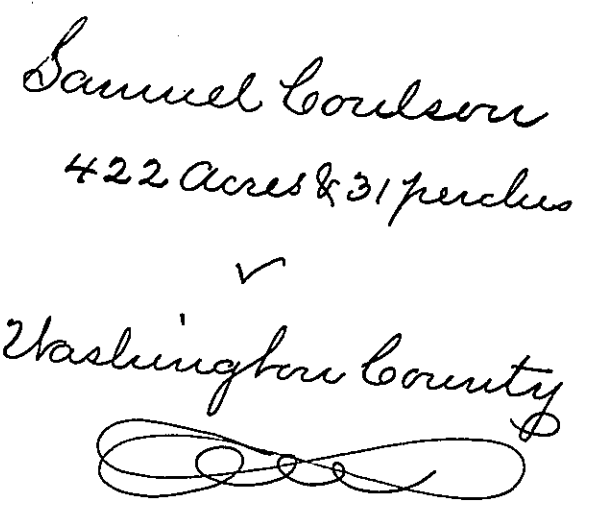 Samuel Coulson
422 Acres & 31 perches
✓
Washington County